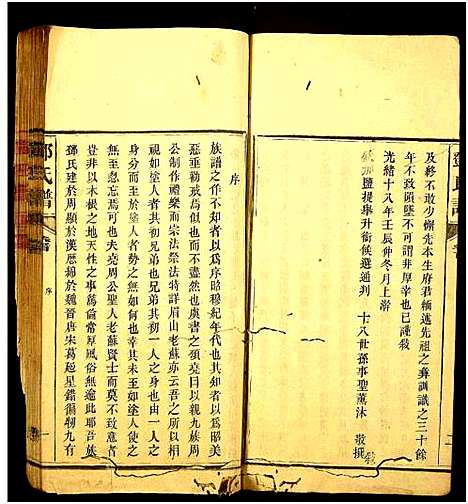 及終不敢少懈先本生府君輙述先祖之彝訓識之三十餘
年不致隕墜不可謂非厚幸也已謹叙
光緒十八年壬辰仲冬月上澣
鹽提舉升銜候選通判　十八世孫事聖薰沐　敬撰
序
族譜之作不知者以爲序昭穆紀年代也其知者以爲昭美
惡垂勸戒爲似也而不盡然也虞書之頌堯曰以親九族周
公制作禮樂而宗法祭法特詳眉山老蘇亦云吾之所以相
視如塗人者其初兄弟也兄弟其初一人之身也一人之
身分而至於塗人者勢也幸其未至於塗人也使之
無至忽忘焉可也夫堯周公聖人老蘇賢士而不致意者
豈非以木根之地天性之事爲倫常厚風俗無逾此耶吾族
鄧氏建於周顯於漢歷綿於魏晉唐宋葛起星錯彌九有
鄧氏譜
序